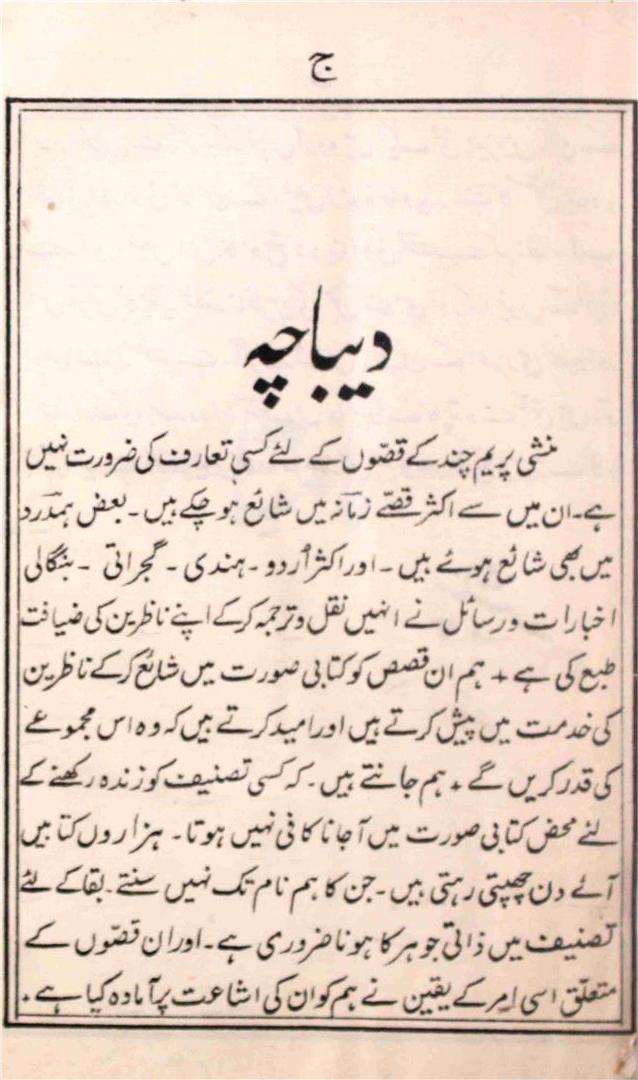 ج
دیباچہ
منشی پریم چند کے قصّوں کے لئے کسی تعارف کی ضرورت نہیں
ہے۔ ان میں سے اکثر قصّے زمانہ میں شائع ہو چکے ہیں۔ بعض ہمدرد
میں بھی شائع ہوئے ہیں۔ اور اکثر اُردو۔ ہندی۔ گجراتی۔ بنگالی
اخبارات و رسائل نے انہیں نقل و ترجمہ کرکے اپنے ناظرین کی ضیافت
طبع کی ہے + ہم ان قصص کو کتابی صورت میں شائع کرکے ناظرین
کی خدمت میں پیش کرتے ہیں اور امید کرتے ہیں کہ وہ اس مجموعے
کی قدر کریں گے + ہم جانتے ہیں۔ کہ کسی تصنیف کو زندہ رکھنے کے
لئے محض کتابی صورت میں آجانا کافی نہیں ہوتا۔ ہزاروں کتابیں
آئے دن چھپتی رہتی ہیں۔ جن کا ہم نام تک نہیں سنتے۔ بقا کے لئے
تصنیف میں ذاتی جوہر کا ہونا ضروری ہے۔ اور ان قصّوں کے
متعلّق اسی امر کے یقین نے ہم کو ان کی اشاعت پر آمادہ کیا ہے +